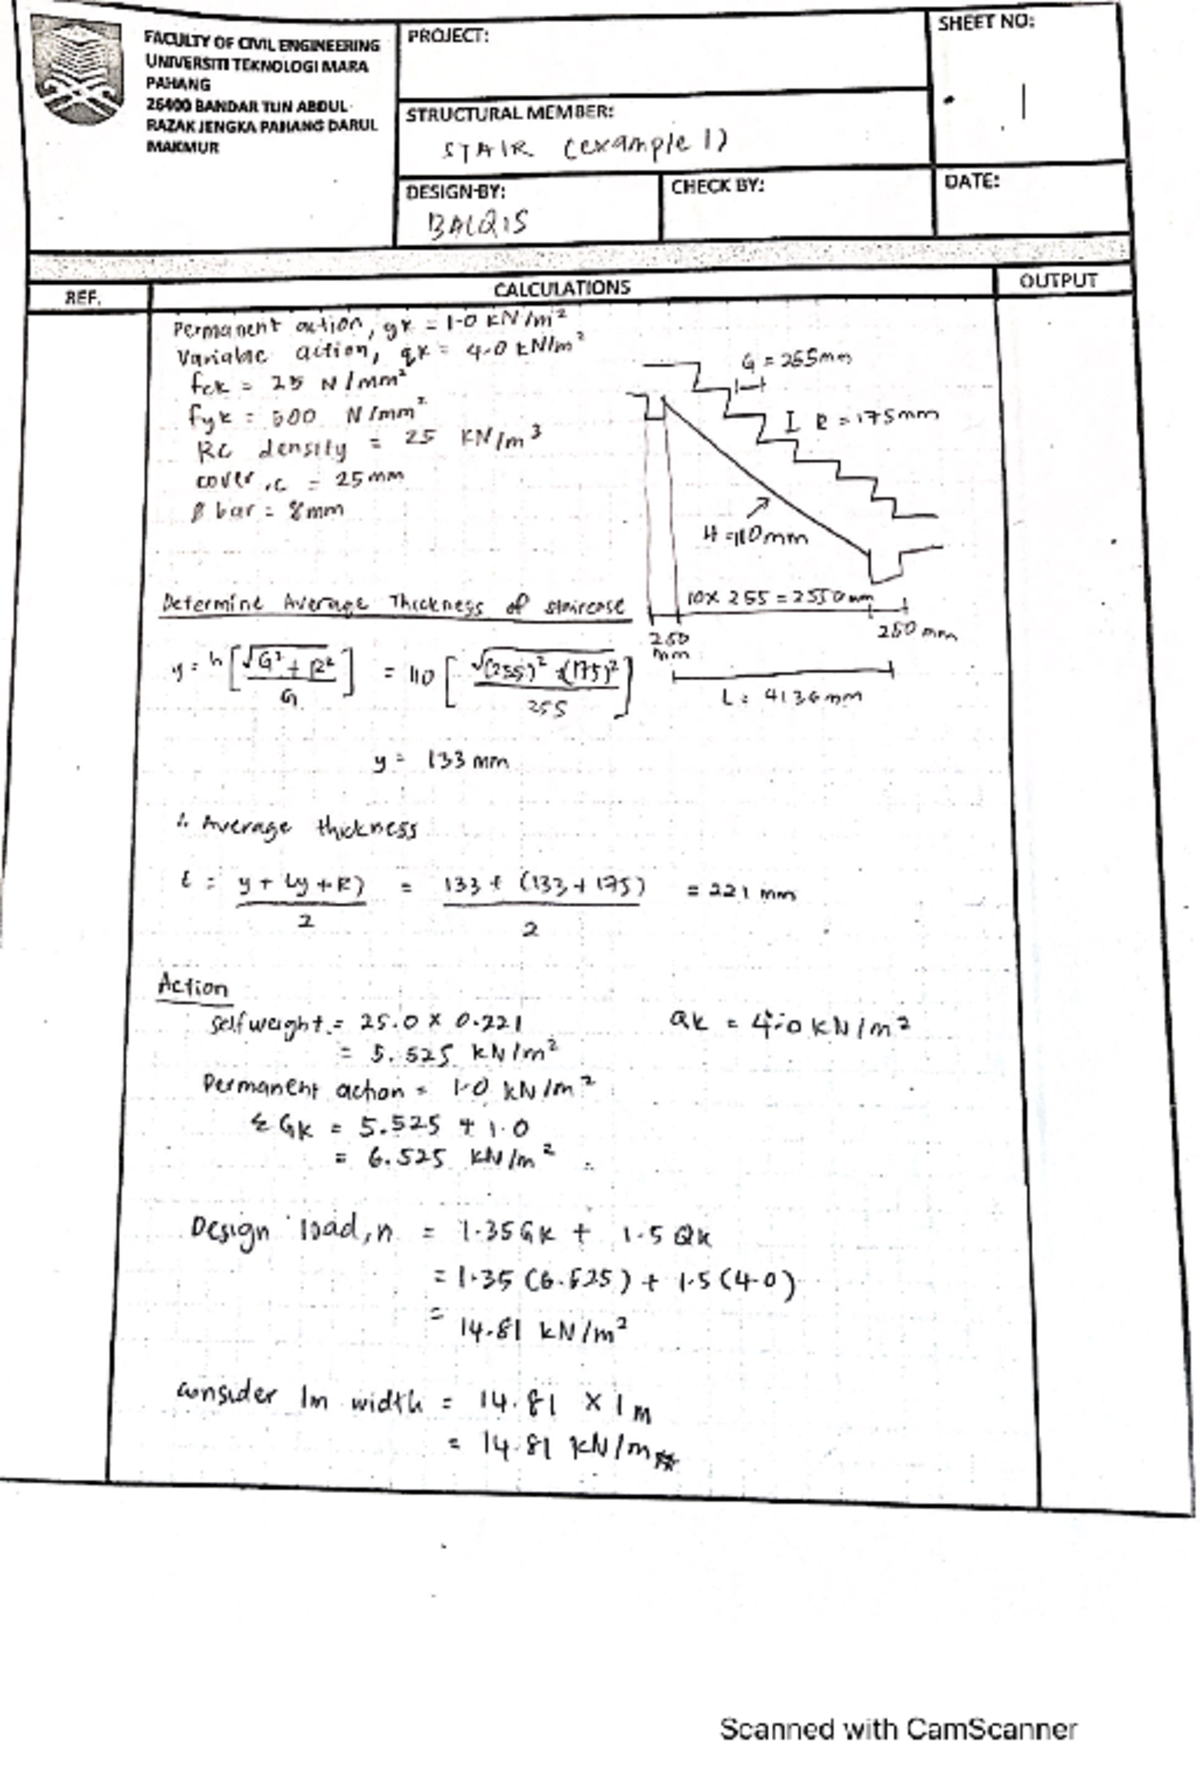 FACULTY OF CIVIL ENGINEERING
UNIVERSITI TEKNOLOGI MARA
PAHANG
26400 BANDAR TUN ABDUL
RAZAK JENGKA PAHANG DARUL
MAKMUR
PROJECT:
STRUCTURAL MEMBER:
STAIR (example 1)
DESIGN BY:
BALQIS
CHECK BY:
SHEET NO:
1
DATE:
REF.
CALCULATIONS
OUTPUT
Permanent action, gk = 1.0 kN/m²
Variable action, qk = 4.0 kN/m²
fck = 25 N/mm²
fyk = 500 N/mm²
RC density = 25 KN/m³
cover, c = 25mm
Ø bar = 8mm
G = 255mm
R = 175mm
H = 110mm
10 x 255 = 2550 mm
250 mm
250 mm
L = 4136 mm
Determine Average Thickness of staircase
y = h [√G² + R² / G] = 110 [√(255)² + (175)² / 255]
y = 133 mm
∴ Average thickness
t = y + (y + R) / 2 = 133 + (133 + 175) / 2 = 221 mm
Action
Selfweight = 25.0 x 0.221
= 5.525 kN/m²
Qk = 4.0 kN/m²
Permanent action = 1.0 kN/m²
Σ Gk = 5.525 + 1.0
= 6.525 kN/m²
Design load, n = 1.35Gk + 1.5 Qk
= 1.35 (6.525) + 1.5 (4.0)
= 14.81 kN/m²
consider 1m width = 14.81 x 1m
= 14.81 kN/m
Scanned with CamScanner